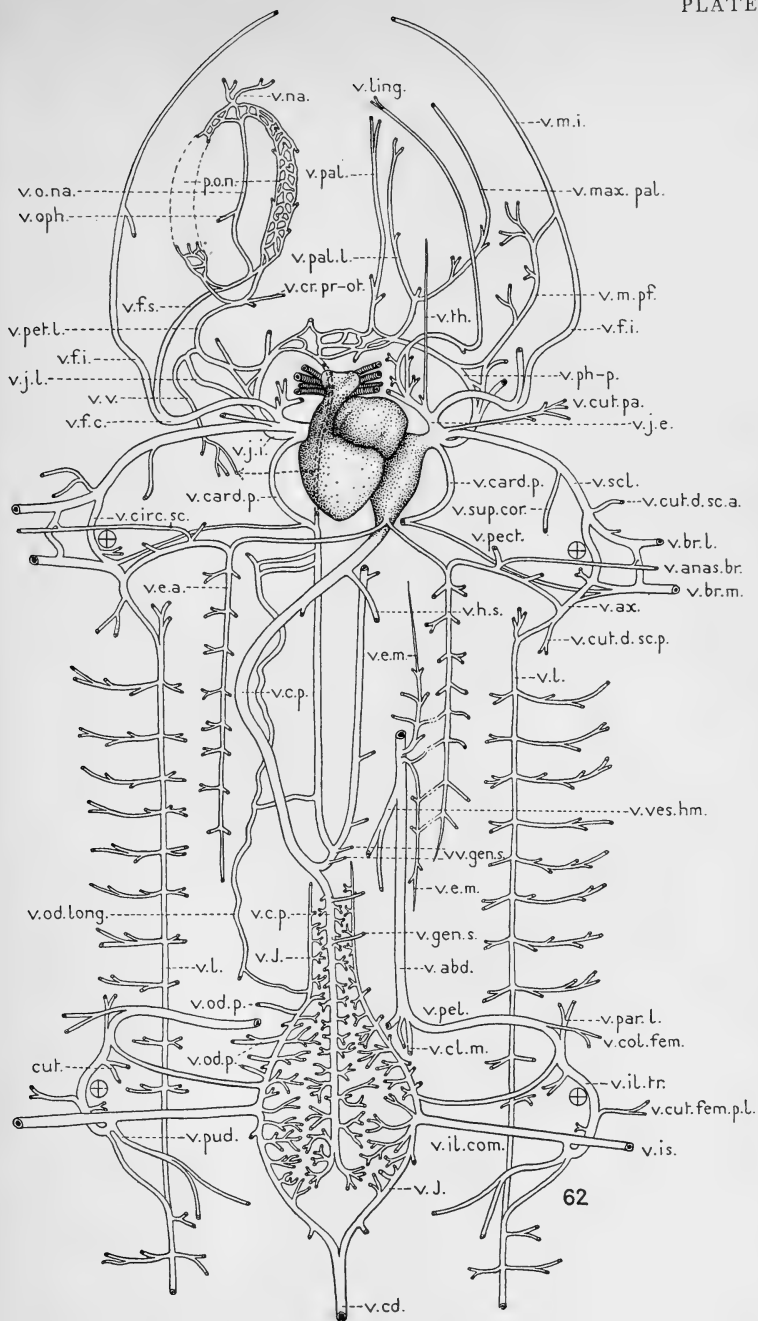 PLATE
v.na.
v.ling.
v.m.i.
p.o.n.
v.pal.
v.o.na.
v.max. pal.
v.oph.
v.pal.l.
v.cr.pr-ot.
v.f.s.
v.th.
v.m.pf.
v.pet.l.
v.f.i.
v.f.i.
v.j.l.
v.ph-p.
v.v.
v.cut.pa.
v.f.c.
v.j.e.
v.j.i.
v.card.p.
v.card.p.
v.scl.
v.sup.cor.
v.cut.d.sc.a.
v.circ.sc.
v.pect.
v.br.l.
v.anas.br.
v.br.m.
v.e.a.
v.h.s.
v.ax.
v.cut.d.sc.p.
v.e.m.
v.l.
v.c.p.
v.ves.hm.
vv.gen.s.
v.e.m.
v.od.long.
v.c.p.
v.gen.s.
v.J.
v.l.
v.abd.
v.od.p.
v.pel.
v.par.l.
v.cl.m.
v.col.fem.
v.od.p.
cut.
v.il.tr.
v.cut.fem.p.l.
v.pud.
v.il.com.
v.is.
v.J.
62
v.cd.